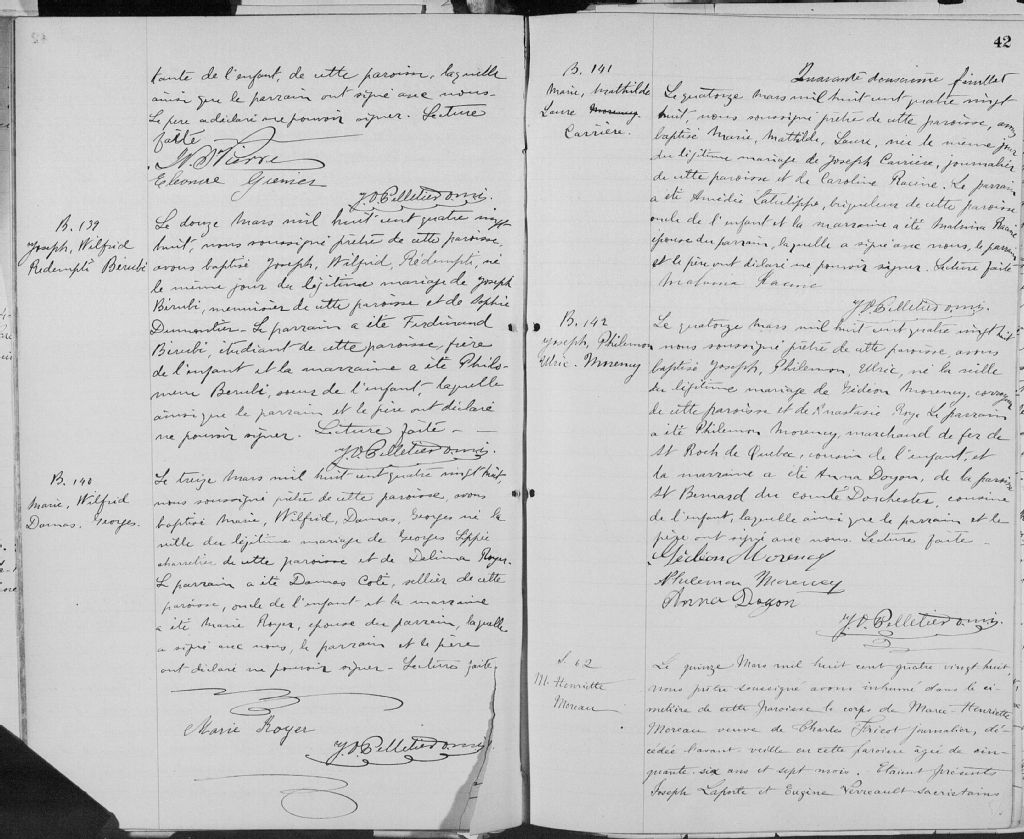 tante de l'enfant, de cette paroisse, laquelle
ainsi que le parrain ont signé avec nous.
Le père a déclaré ne pouvoir signer. Lecture
faite
Eleonore Grenier
J.O. Pelletier o.m.i.
B. 139
Joseph, Wilfrid
Rédempti Berubé
Le douze Mars mil huit cent quatre vingt
huit, nous soussigné prêtre de cette paroisse,
avons baptisé Joseph, Wilfrid, Rédempti, né
le même jour du légitime mariage de Joseph
Bérubé, menuisier de cette paroisse et de Sophie
Dumontier. Le parrain a été Ferdinand
Berubé, étudiant de cette paroisse, frère
de l'enfant et la marraine a été Philo-
mene Berubé, soeur de l'enfant, laquelle
ainsi que le parrain et le père ont déclaré
ne pouvoir signer. Lecture faite
J.O. Pelletier o.m.i.
B. 140
Marie, Wilfrid
Damas, Georges.
Le treize Mars mil huit cent quatre vingt huit,
nous soussigné prêtre de cette paroisse, avons
baptisé Marie, Wilfrid, Damas, Georges né la
veille du légitime mariage de Georges
charretier de cette paroisse et de Delima Royer.
Le parrain a été Damas Coté, sellier de cette
paroisse, oncle de l'enfant et la marraine
a été Marie Royer, épouse du parrain, laquelle
a signé avec nous, le parrain et le père
ont déclaré ne pouvoir signer. Lecture faite.
Marie Royer
J.O. Pelletier o.m.i.
42
Quarante deuxième feuillet
B. 141
Marie, Mathilde
Laure Morency
Carrière.
Le quatorze Mars mil huit cent quatre vingt
huit, nous soussigné prêtre de cette paroisse, avons
baptisé Marie, Mathilde, Laure, née le même jour
du légitime mariage de Joseph Carrière, journalier
de cette paroisse et de Caroline Racine. Le parrain
a été Amédée Latulippe, briqueleur de cette paroisse
oncle de l'enfant et la marraine a été Malvina Racine
épouse du parrain, laquelle a signé avec nous, le parrain
et le père ont déclaré ne pouvoir signer. Lecture faite
J.O. Pelletier o.m.i.
B. 142
Joseph, Philemon
Ulric. Morency
Le quatorze Mars mil huit cent quatre vingt huit
nous soussigné prêtre de cette paroisse, avons
baptisé Joseph, Philemon, Ulric, né la veille
du légitime mariage de Gédéon Morency, corroyeur
de cette paroisse et de Anastasie Roye. Le parrain
a été Philemon Morency, marchand de fer de
St Roch de Quebec, cousin de l'enfant, et
la marraine a été Anna Doyon, de la paroisse
St Bernard du comté Dorchester, cousine
de l'enfant, laquelle ainsi que le parrain et le
père ont signé avec nous. Lecture faite.
Gédéon Morency
Philemon Morency
Anna Doyon
J.O. Pelletier o.m.i.
S. 62
M. Henriette
Moreau
Le quinze Mars mil huit cent quatre vingt huit
nous prêtre soussigné avons inhumé dans le ci-
metière de cette paroisse le corps de Marie Henriette
Moreau veuve de Charles Fricot journalier, dé-
cédée l'avant-veille en cette paroisse âgée de cin-
quante-six ans et sept mois. Etaient présents
Joseph Laporte et Eugène Verreault sacristains